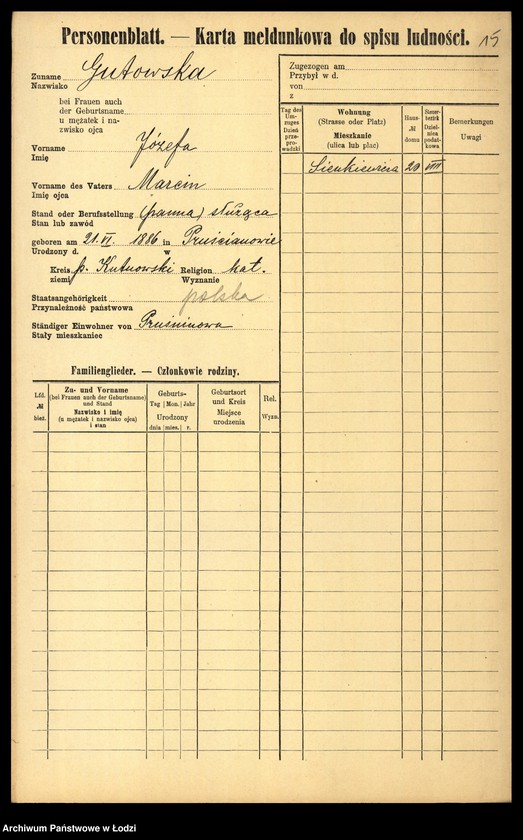 Personenblatt. — Karta meldunkowa do spisu ludności. 15
Zuname Gutowska
Nazwisko
bei Frauen auch
der Geburtsname
u mężatek i na-
zwisko ojca
Vorname Józefa
Imię
Vorname des Vaters Marcin
Imię ojca
Stand oder Berufsstellung (panna) służąca
Stan lub zawód
geboren am 21. VI. 1886 in Pruścianowie
Urodzony d. w
Kreis p. Kutnowski Religion kat.
ziemi Wyznanie
Staatsangehörigkeit polska
Przynależność państwowa
Ständiger Einwohner von
Stały mieszkaniec
Familienglieder. — Członkowie rodziny.
Lfd.
№
bież.
Zu- und Vorname
(bei Frauen auch der Geburtsname)
und Stand
Nazwisko i imię
(u mężatek i nazwisko ojca)
i stan
Geburts-
Tag | Mon. | Jahr
Urodzony
dnia | mies. | r.
Geburtsort
und Kreis
Miejsce
urodzenia
Rel.
Wyzn.
Zugezogen am
Przybył w d.
von
z
Tag des
Um-
zuges
Dzień
prze-
pro-
wadzki
Wohnung
(Strasse oder Platz)
Mieszkanie
(ulica lub plac)
Haus-
№
domu
Steuer-
bezirk
Dziel-
nica
podat-
kowa
Bemerkungen
Uwagi
Sienkiewicza 20 VIII
Archiwum Państwowe w Łodzi